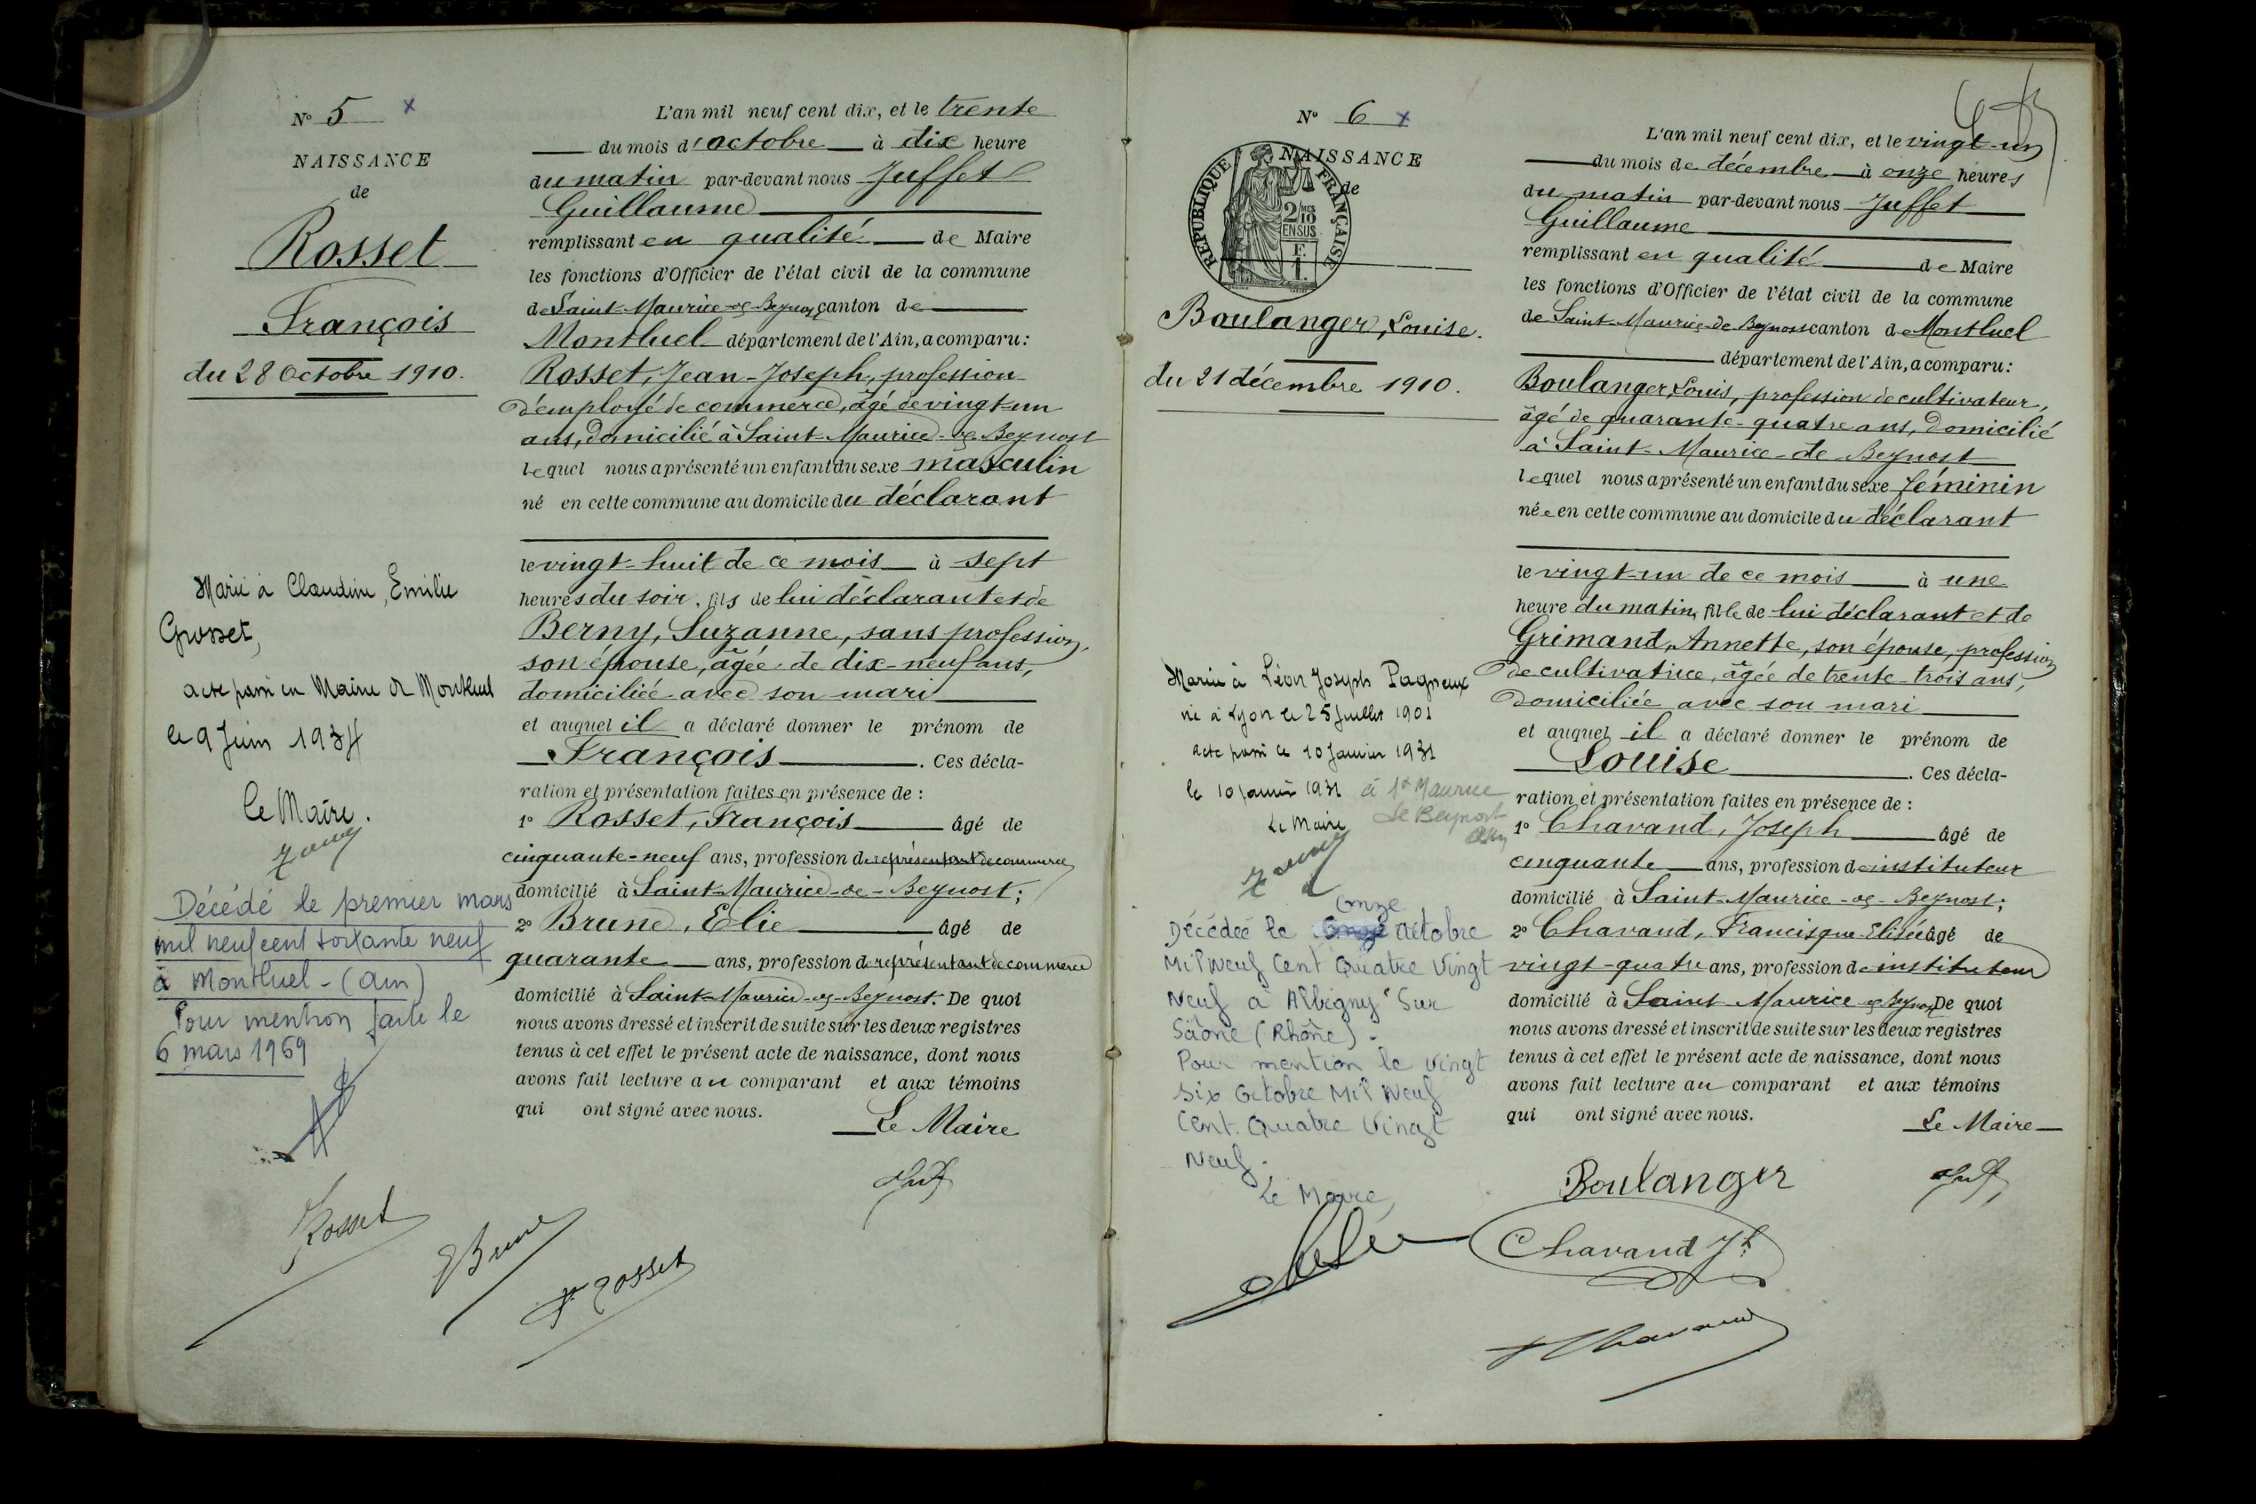 N° 5 x
NAISSANCE
de
Rosset
François
du 28 Octobre 1910.
Marié à Claudine, Emilie
Grosset,
acte passé en Mairie de Montluel
le 9 Juin 1934
Le Maire.
Décédé le premier mars
mil neuf cent soixante neuf
à Montluel - (Ain)
Pour mention faite le
6 mars 1969
L'an mil neuf cent dix, et le trente
du mois d'octobre à dix heure
du matin par-devant nous Juffet
Guillaume
remplissant en qualité de Maire
les fonctions d'Officier de l'état civil de la commune
de Saint-Maurice-de-Beynost canton de
Montluel département de l'Ain, a comparu:
Rosset, Jean-Joseph, profession
d'employé de commerce, âgé de vingt-un
ans, domicilié à Saint-Maurice-de-Beynost
lequel nous a présenté un enfant du sexe masculin
né en cette commune au domicile du déclarant
le vingt-huit de ce mois à sept
heures du soir. fils de lui déclarant et de
Berny, Suzanne, sans profession,
son épouse, âgée de dix-neuf ans,
domiciliée avec son mari
et auquel il a déclaré donner le prénom de
François. Ces décla-
ration et présentation faites en présence de :
1° Rosset, François âgé de
cinquante-neuf ans, profession de représentant de commerce
domicilié à Saint-Maurice-de-Beynost;
2° Brune, Elie âgé de
quarante ans, profession de représentant de commerce
domicilié à Saint-Maurice-de-Beynost. De quoi
nous avons dressé et inscrit de suite sur les deux registres
tenus à cet effet le présent acte de naissance, dont nous
avons fait lecture au comparant et aux témoins
qui ont signé avec nous.
Le Maire
Rosset
E Brune
F. Rosset
N° 6 x
NAISSANCE
de
REPUBLIQUE FRANÇAISE
2/10
EN SUS
F.
1.
Boulanger, Louise.
du 21 décembre 1910.
Mariée à Léon Joseph Pagneux
né à Lyon le 25 Juillet 1901
acte passé le 10 Janvier 1931
le 10 Janvier 1931 à St Maurice
de Beynost
Ain
Le Maire
onze
Décédée le octobre
Mil Neuf Cent Quatre Vingt
Neuf à Albigny Sur
Saône (Rhône).
Pour mention le vingt
six Octobre Mil Neuf
Cent Quatre Vingt
Neuf.
Le Maire,
L'an mil neuf cent dix, et le vingt-un
du mois de décembre à onze heures
du matin par-devant nous Juffet
Guillaume
remplissant en qualité de Maire
les fonctions d'Officier de l'état civil de la commune
de Saint-Maurice-de-Beynost canton de Montluel
département de l'Ain, a comparu:
Boulanger, Louis, profession de cultivateur,
âgé de quarante-quatre ans, domicilié
à Saint-Maurice-de-Beynost
lequel nous a présenté un enfant du sexe féminin
née en cette commune au domicile du déclarant
le vingt-un de ce mois à une
heure du matin, fille de lui déclarant et de
Grimand, Annette, son épouse, profession
de cultivatrice, âgée de trente-trois ans,
domiciliée avec son mari
et auquel il a déclaré donner le prénom de
Louise. Ces décla-
ration et présentation faites en présence de :
1° Chavand, Joseph âgé de
cinquante ans, profession de instituteur
domicilié à Saint-Maurice-de-Beynost;
2° Chavand, Francisque Elisée âgé de
vingt-quatre ans, profession de instituteur
domicilié à Saint-Maurice-de-Beynost De quoi
nous avons dressé et inscrit de suite sur les deux registres
tenus à cet effet le présent acte de naissance, dont nous
avons fait lecture au comparant et aux témoins
qui ont signé avec nous.
Le Maire
Boulanger
Chavand Jh
Chavand